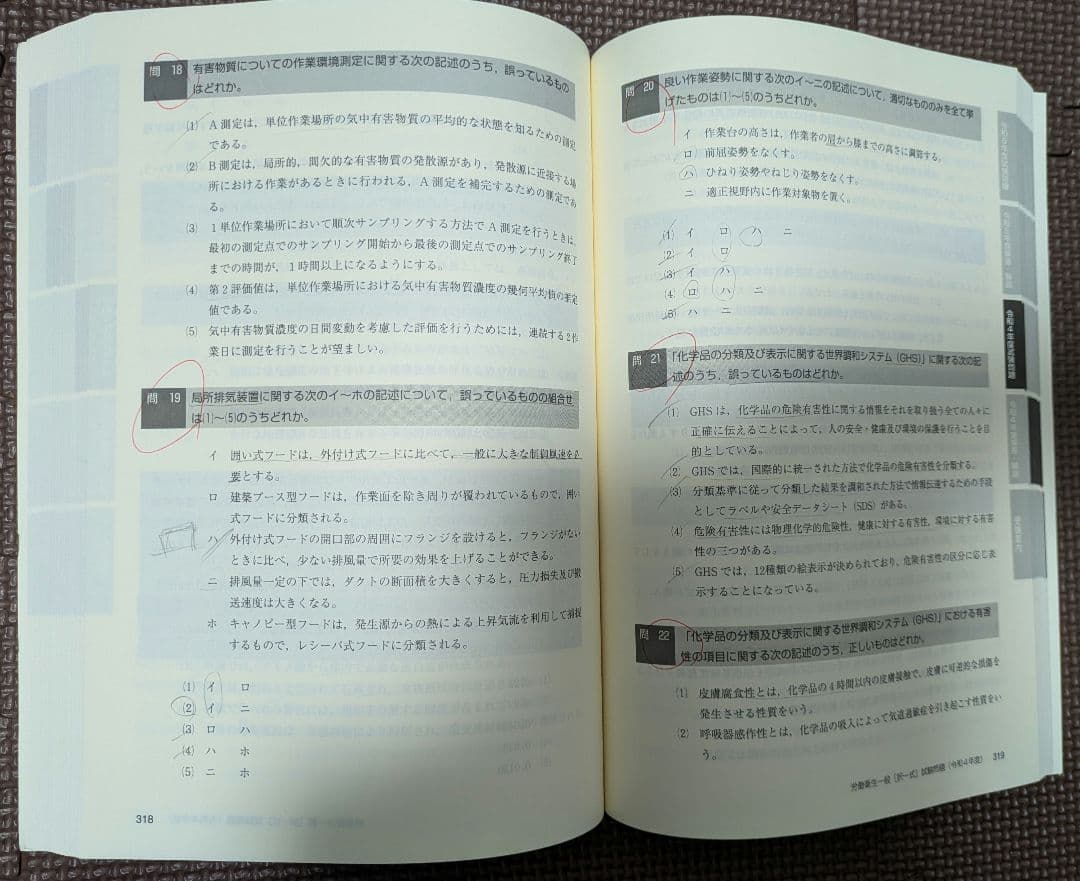 問 18 有害物質についての作業環境測定に関する次の記述のうち，誤っているもの
はどれか。
(1) A測定は，単位作業場所の気中有害物質の平均的な状態を知るための測定
である。
(2) B測定は，局所的，間欠的な有害物質の発散源があり，発散源に近接する場
所における作業があるときに行われる，A測定を補完するための測定であ
る。
(3) 1単位作業場所において順次サンプリングする方法でA測定を行うときは，
最初の測定点でのサンプリング開始から最後の測定点でのサンプリング終了
までの時間が，1時間以上になるようにする。
(4) 第2評価値は，単位作業場所における気中有害物質濃度の幾何平均値の推定
値である。
(5) 気中有害物質濃度の日間変動を考慮した評価を行うためには，連続する2作
業日に測定を行うことが望ましい。
問 19 局所排気装置に関する次のイ～ホの記述について，誤っているものの組合せ
は(1)～(5)のうちどれか。
イ 囲い式フードは，外付け式フードに比べて，一般に大きな制御風速を必
要とする。
ロ 建築ブース型フードは，作業面を除き周りが覆われているもので，囲い
式フードに分類される。
ハ 外付け式フードの開口部の周囲にフランジを設けると，フランジがない
ときに比べ，少ない排風量で所要の効果を上げることができる。
ニ 排風量一定の下では，ダクトの断面積を大きくすると，圧力損失及び搬
送速度は大きくなる。
ホ キャノピー型フードは，発生源からの熱による上昇気流を利用して捕捉
するもので，レシーバ式フードに分類される。
(1) イ ロ
(2) イ ニ
(3) ロ ハ
(4) ハ ホ
(5) ニ ホ
318
問 20 良い作業姿勢に関する次のイ～ニの記述について，適切なもののみを全て挙
げたものは(1)～(5)のうちどれか。
イ 作業台の高さは，作業者の肩から膝までの高さに調節する。
ロ 前屈姿勢をなくす。
ハ ひねり姿勢やねじり姿勢をなくす。
ニ 適正視野内に作業対象物を置く。
(1) イ ロ ハ ニ
(2) イ ロ
(3) イ ハ
(4) ロ ハ ニ
(5) ハ ニ
問 21 「化学品の分類及び表示に関する世界調和システム（GHS）」に関する次の記
述のうち，誤っているものはどれか。
(1) GHSは，化学品の危険有害性に関する情報をそれを取り扱う全ての人々に
正確に伝えることによって，人の安全・健康及び環境の保護を行うことを目
的としている。
(2) GHSでは，国際的に統一された方法で化学品の危険有害性を分類する。
(3) 分類基準に従って分類した結果を調和された方法で情報伝達するための手段
としてラベルや安全データシート（SDS）がある。
(4) 危険有害性には物理化学的危険性，健康に対する有害性，環境に対する有害
性の三つがある。
(5) GHSでは，12種類の絵表示が決められており，危険有害性の区分に応じ表
示することになっている。
問 22 「化学品の分類及び表示に関する世界調和システム（GHS）」における有害
性の項目に関する次の記述のうち，正しいものはどれか。
(1) 皮膚腐食性とは，化学品の4時間以内の皮膚接触で，皮膚に可逆的な損傷を
発生させる性質をいう。
(2) 呼吸器感作性とは，化学品の吸入によって気道過敏症を引き起こす性質をい
う。
労働衛生一般〔択一式〕試験問題（令和4年度） 319
令和4年度試験問題